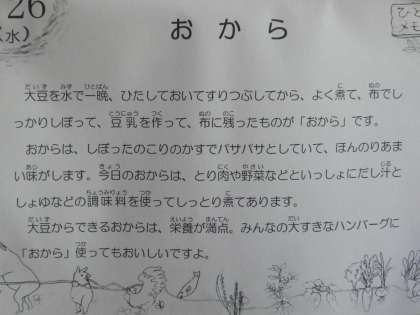 26
(水)
おから
ひと
メモ
大豆を水で一晩、ひたしておいてすりつぶしてから、よく煮て、布でし
っかりしぼって、豆乳を作って、布に残ったものが「おから」です。
おからは、しぼったのこりのかすでパサパサとしていて、ほんのりあま
い味がします。今日のおからは、とり肉や野菜などといっしょにだし汁と
しょゆなどの調味料を使ってしっとり煮てあります。
大豆からできるおからは、栄養が満点。みんなの大すきなハンバーグに
「おから」使ってもおいしいですよ。